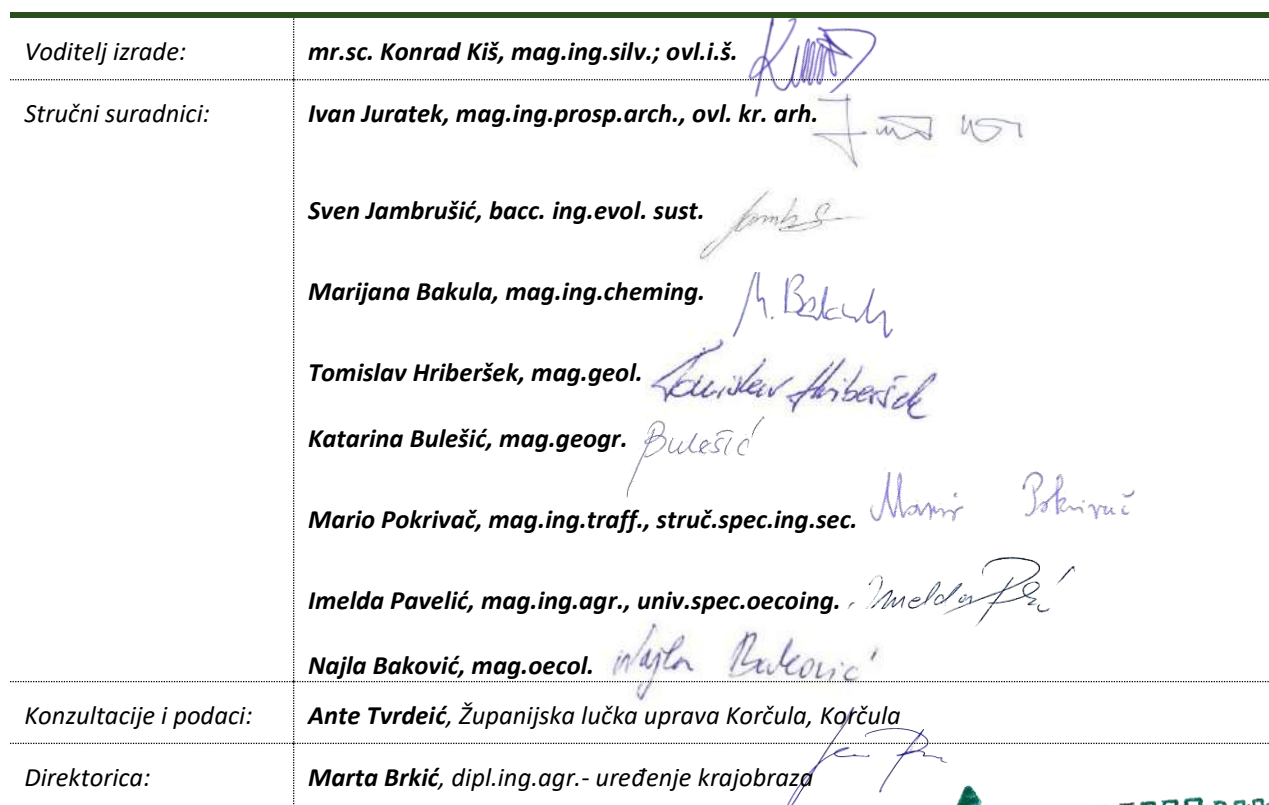 Voditelj izrade: mr.sc. Konrad Kiš, mag.ing.silv.; ovl.i.š.
Stručni suradnici: Ivan Juratek, mag.ing.prosp.arch., ovl. kr. arh.
Sven Jambrušić, bacc. ing.evol. sust.
Marijana Bakula, mag.ing.cheming. M. Bakula
Tomislav Hriberšek, mag.geol. Tomislav Hriberšek
Katarina Bulešić, mag.geogr. Bulešić
Mario Pokrivač, mag.ing.traff., struč.spec.ing.sec. Mario Pokrivač
Imelda Pavelić, mag.ing.agr., univ.spec.oecoing. Imelda
Najla Baković, mag.oecol. Najla Baković
Konzultacije i podaci: Ante Tvrdeić, Županijska lučka uprava Korčula, Korčula
Direktorica: Marta Brkić, dipl.ing.agr.- uređenje krajobraza